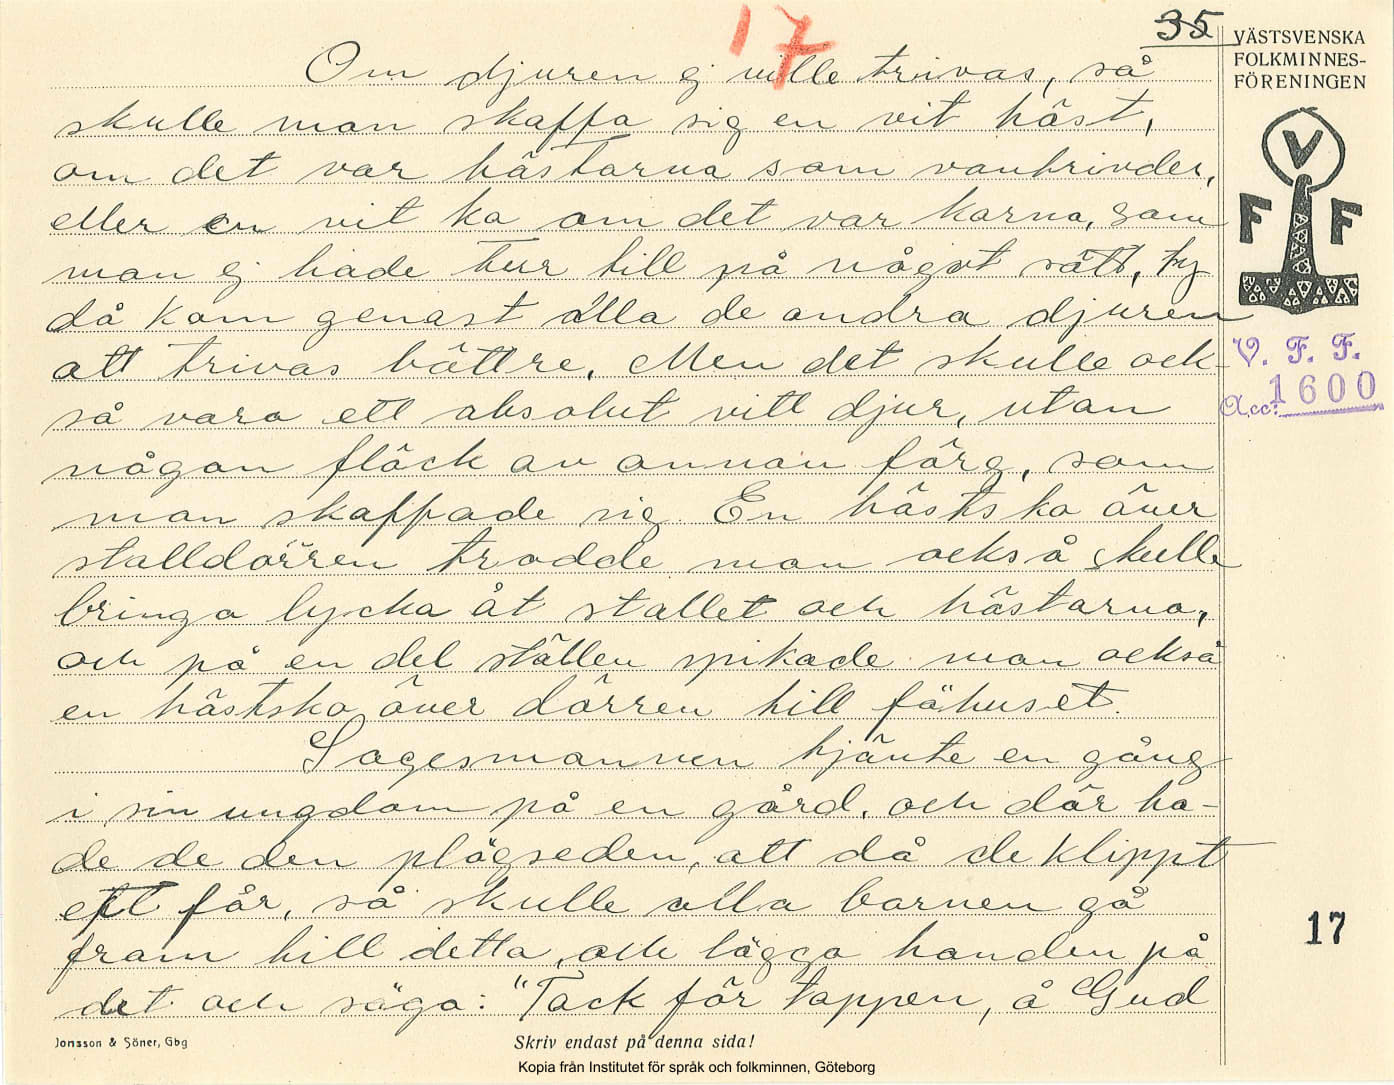 17
35
VÄSTSVENSKA
FOLKMINNES-
FÖRENINGEN
V
F F
V. F. F.
Acc: 1600
Om djuren ej ville trivas, så
skulle man skaffa sig en vit häst,
om det var hästarna som vantrivdes,
eller en vit ko om det var korna, som
man ej hade tur till på något sätt, ty
då kom genast alla de andra djuren
att trivas bättre. Men det skulle ock-
så vara ett absolut vitt djur, utan
någon fläck av annan färg, som
man skaffade sig. En hästsko över
stalldörren trodde man också skulle
bringa lycka åt stallet och hästarna,
och på en del ställen spikade man också
en hästsko över dörren till fähuset.
Sagesmannen tjänte en gång
i sin ungdom på en gård, och där ha-
de de den plägseden, att då de klippt
ett får, så skulle alla barnen gå
fram till detta, och lägga handen på
det och säga: "Tack för tappen, å Gud
17
Jonsson & Söner, Gbg
Skriv endast på denna sida!
Kopia från Institutet för språk och folkminnen, Göteborg